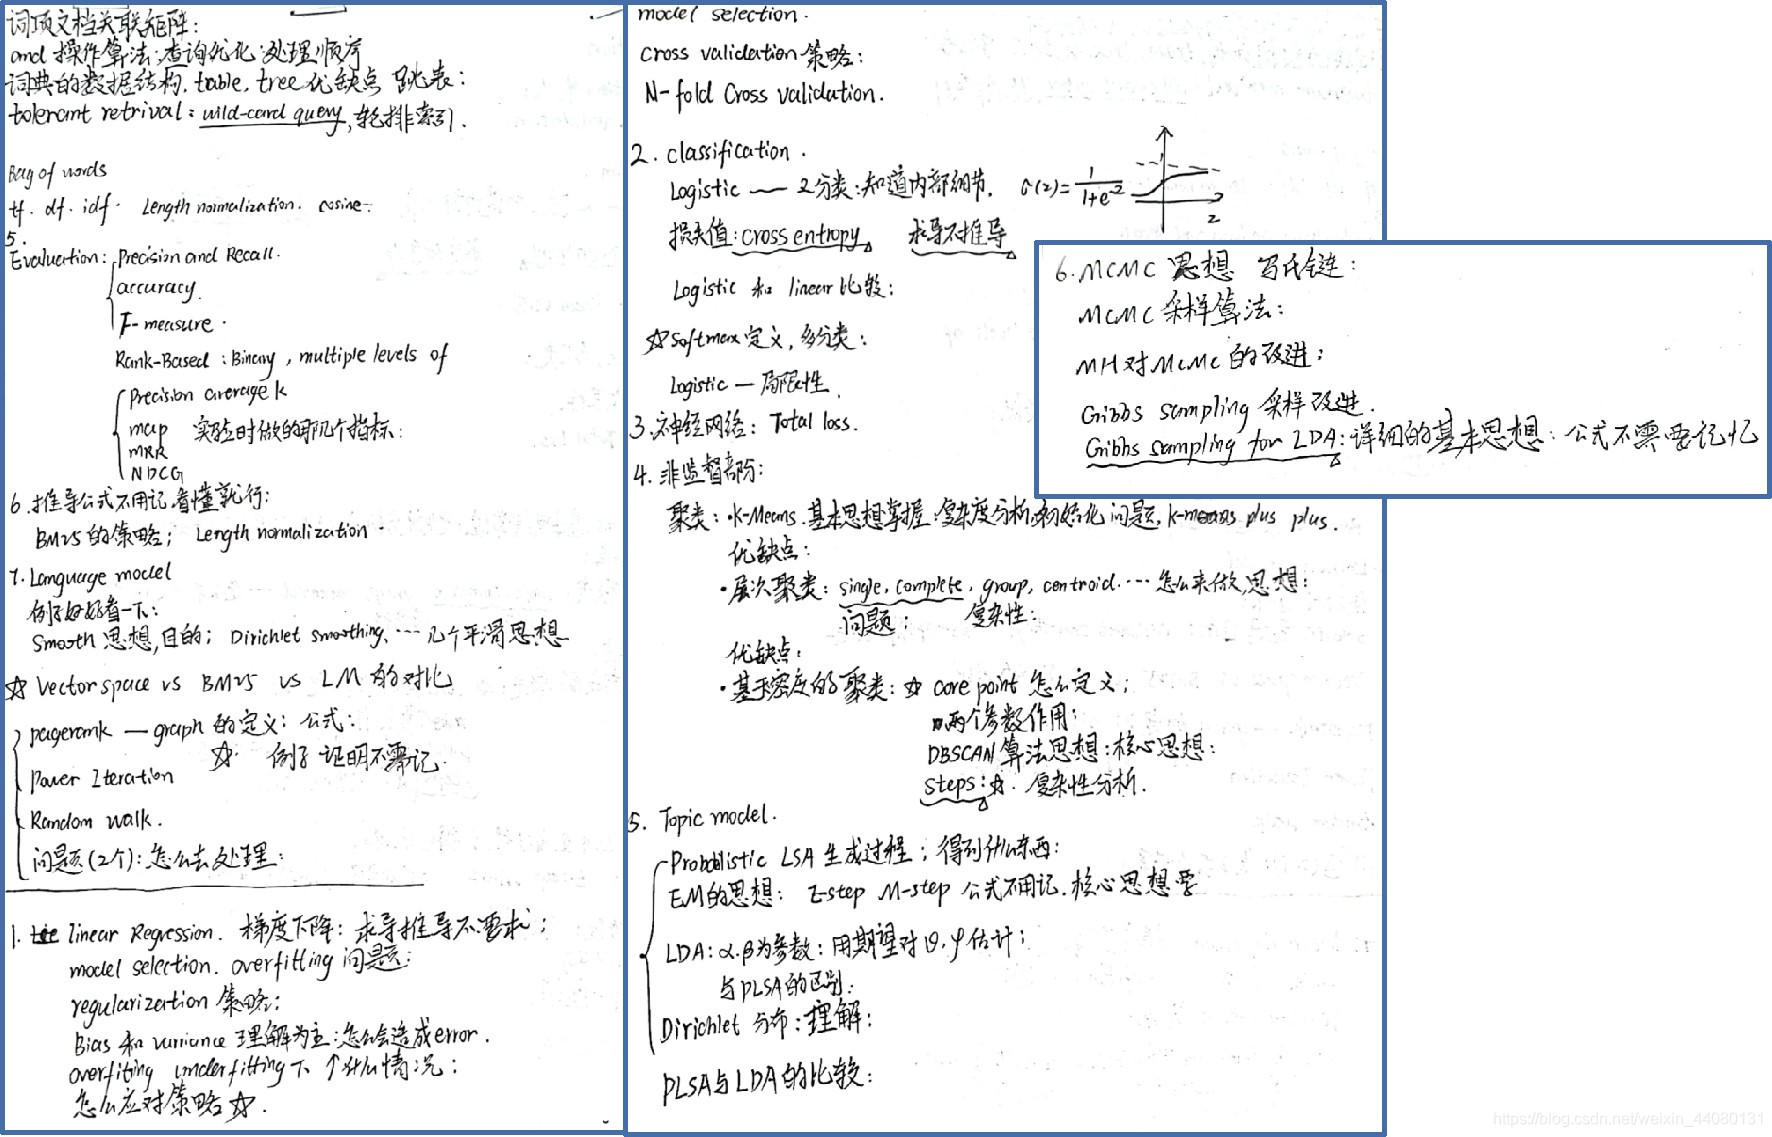 词项文档关联矩阵:
and 操作算法;查询优化 处理顺序
词典的数据结构. table. tree 优缺点 跳表:
tolerant retrival: wild-card query, 轮排索引.
Bag of words
tf. df. idf. Length normalization. cosine:
5.
Evaluation: Precision and Recall.
accuracy.
F-measure.
Rank-Based : Binary, multiple levels of
Precision average k
map 实验时做的那几个指标:
MRR
NDCG
6. 推导公式不用记,看懂就行:
BM25的策略; Length normalization.
7. Language model
例子好好看一下:
Smooth 思想,目的; Dirichlet smoothing, ... 几个平滑思想
☆ Vector space vs BM25 vs LM 的对比
pagerank — graph 的定义: 公式:
☆ 例子 证明不需记.
Power Iteration
Random walk.
问题(2个): 怎么去处理:
1. linear Regression. 梯度下降: 求导推导不要求;
model selection. overfitting 问题:
regularization 策略:
Bias 和 variance 理解为主:怎么会造成error.
overfiting underfitting 下 ↑什么情况:
怎么应对策略 ☆.
model selection.
Cross validation 策略:
N-fold Cross validation.
2. classification.
Logistic — 2分类:知道内部细节. σ(z)=1/(1+e^-z)
z
损失值: cross entropy 求导不推导
Logistic 和 linear 比较:
☆ Softmax 定义, 多分类:
Logistic — 局限性.
3. 神经网络: Total loss.
4. 非监督部分:
聚类: ·K-Means. 基本思想掌握:复杂度分析,初始化问题. k-means plus plus.
优缺点:
·层次聚类: single, complete, group, centroid. ... 怎么来做,思想:
问题: 复杂性:
优缺点:
·基于密度的聚类: ☆ core point 怎么定义;
两个参数作用:
DBSCAN 算法思想:核心思想:
steps: ☆. 复杂性分析.
5. Topic model.
Probablistic LSA 生成过程; 得到什么东西:
EM的思想: E-step M-step 公式不用记. 核心思想要
LDA: α.β为参数: 用期望对 θ.φ 估计;
与PLSA的区别:
Dirichlet 分布: 理解:
PLSA与LDA的比较:
6. MCMC 思想 马氏链:
MCMC 采样算法:
MH对MCMC的改进:
Gibbs sampling 采样改进.
Gibbs sampling for LDA: 详细的基本思想: 公式不需要记忆
https://blog.csdn.net/weixin_44080131